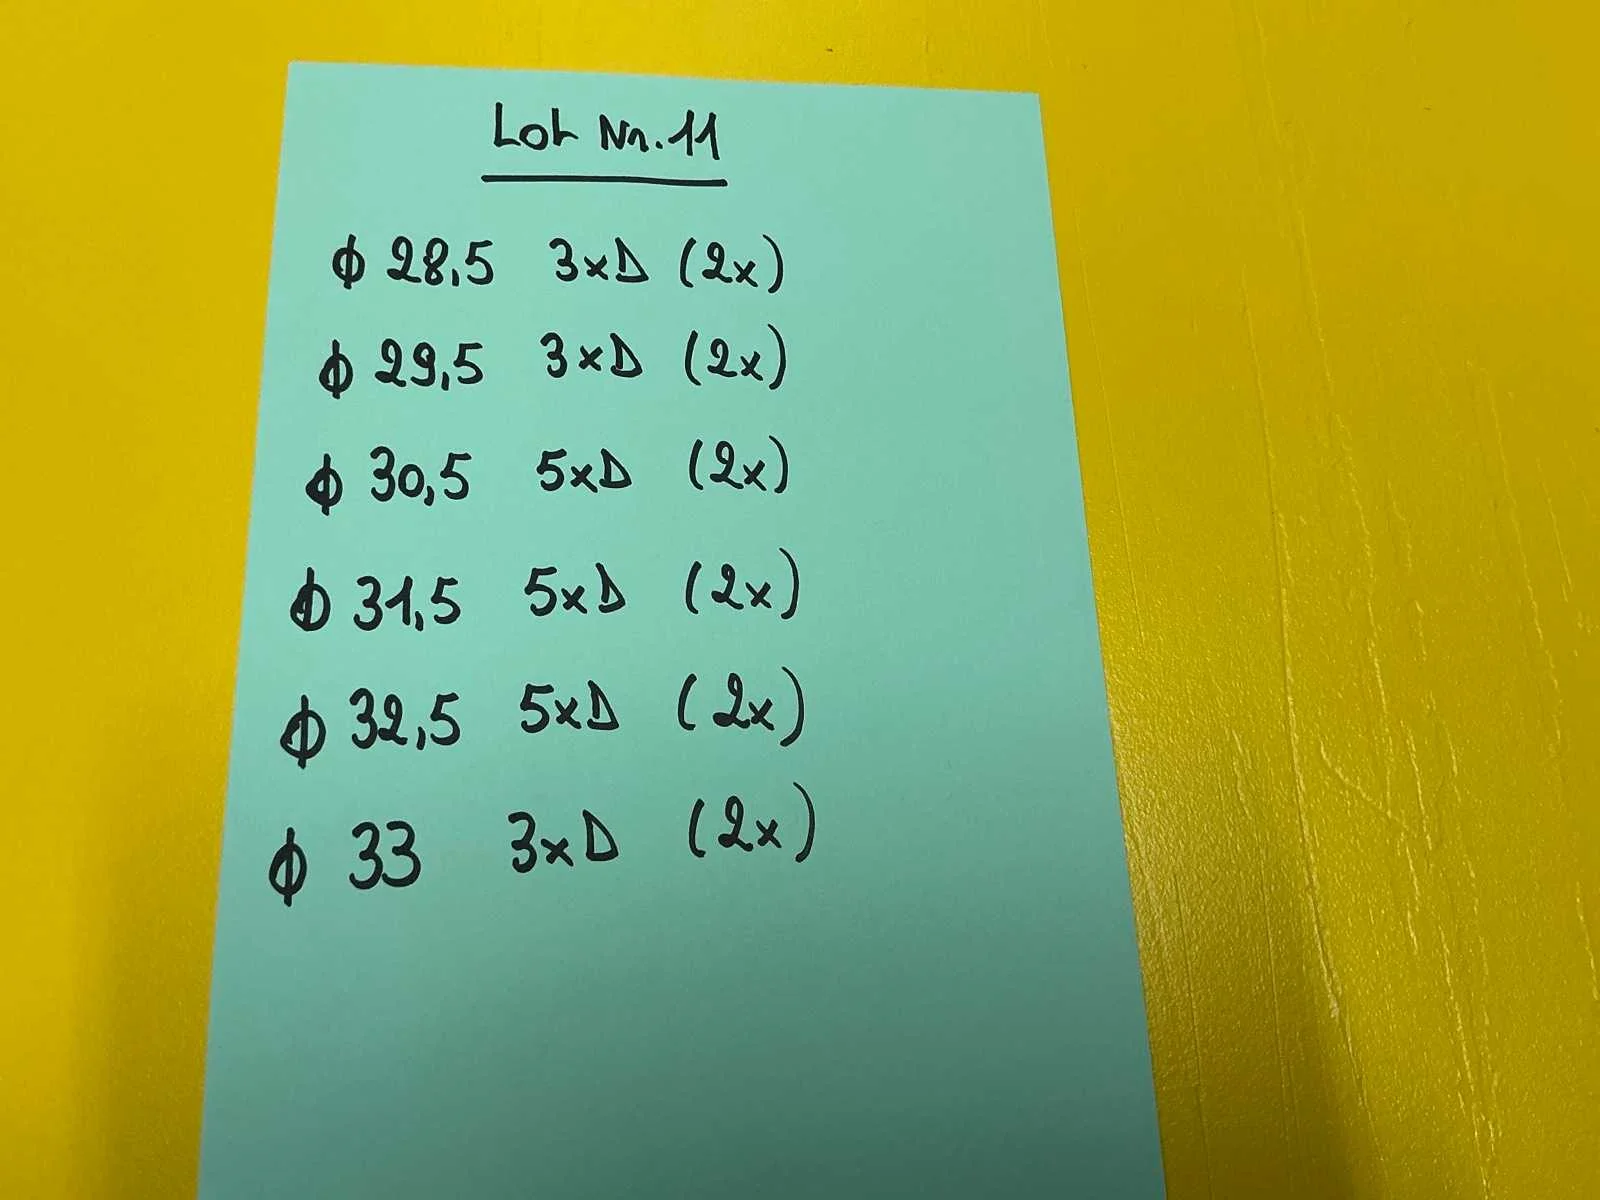 Lot Nr. 11
ϕ 28,5 3xD (2x)
ϕ 29,5 3xD (2x)
ϕ 30,5 5xD (2x)
ϕ 31,5 5xD (2x)
ϕ 32,5 5xD (2x)
ϕ 33 3xD (2x)